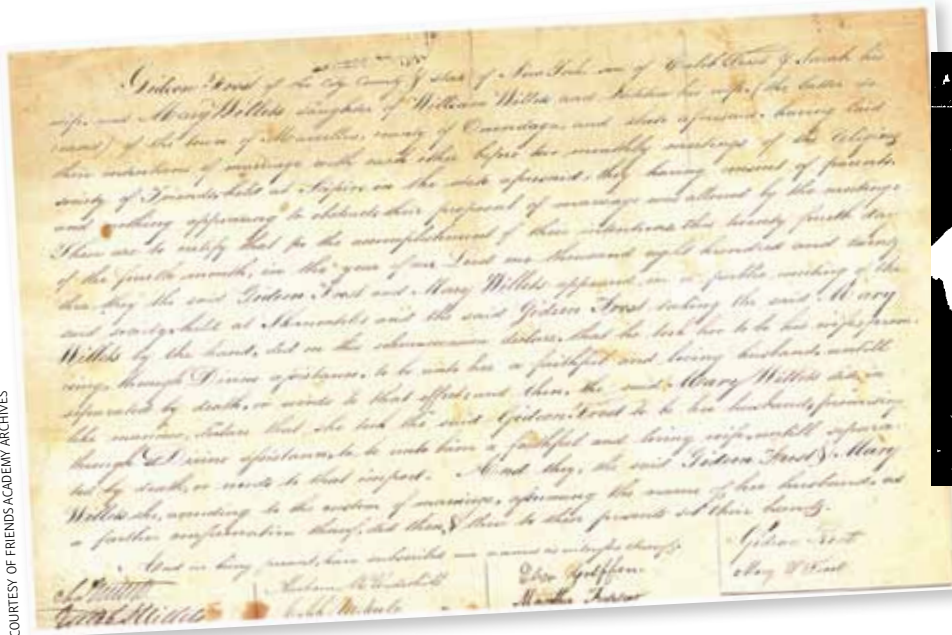 Gideon Frost of the City County & State of New York son of Caleb Frost & Sarah his
wife and Mary Willets daughter of William Willets and his wife, (the latter is
) of the town of Marcellus, county of Onondaga, and state aforesaid, having laid
their intentions of marriage with each other before two monthly meetings of the religious
society of Friends, held at Scipio, in the state aforesaid, they having consent of parents,
and nothing appearing to obstruct their proposal of marriage was allowed by the meetings
These are to certify that for the accomplishment of their intentions this twenty fourth day
of the month, in the year of our Lord one thousand eight hundred and twenty
they the said Gideon Frost and Mary Willets appeared in a public meeting of the
said society, held at Skaneateles and the said Gideon Frost taking the said Mary
Willets by the hand, did on this occasion declare, that he took her to be his wife, prom-
ising, through Divine assistance, to be unto her a faithful and loving husband, untill
separated by death, or words to that effect, and then, the said Mary Willets did, in
like manner, declare that she took the said Gideon Frost to be her husband, promising
through Divine assistance, to be unto him a faithful and loving wife, untill separa-
ted by death, or words to that import. And they, the said Gideon Frost & Mary
Willets she, according to the custom of marriage, assuming the name of her husband, as
a further confirmation thereof, did then & there to these presents set their hands.
in being present, have subscribed our names as witnesses thereof
Gideon Frost
Mary W Frost
COURTESY OF FRIENDS ACADEMY ARCHIVES